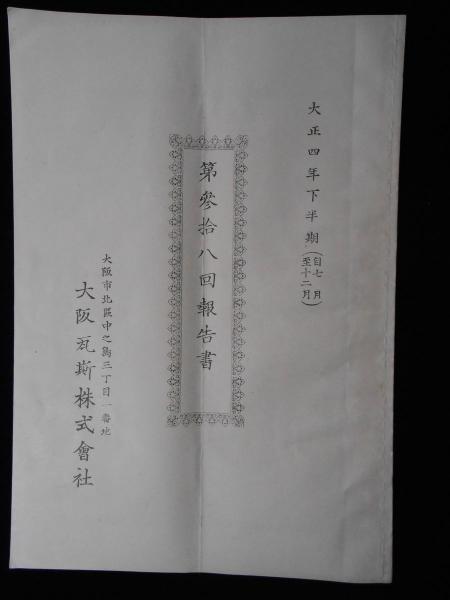 大正四年下半期(自七月至十二月)
第參拾八回報告書
大阪市北區中之島三丁目一番地
大阪瓦斯株式會社